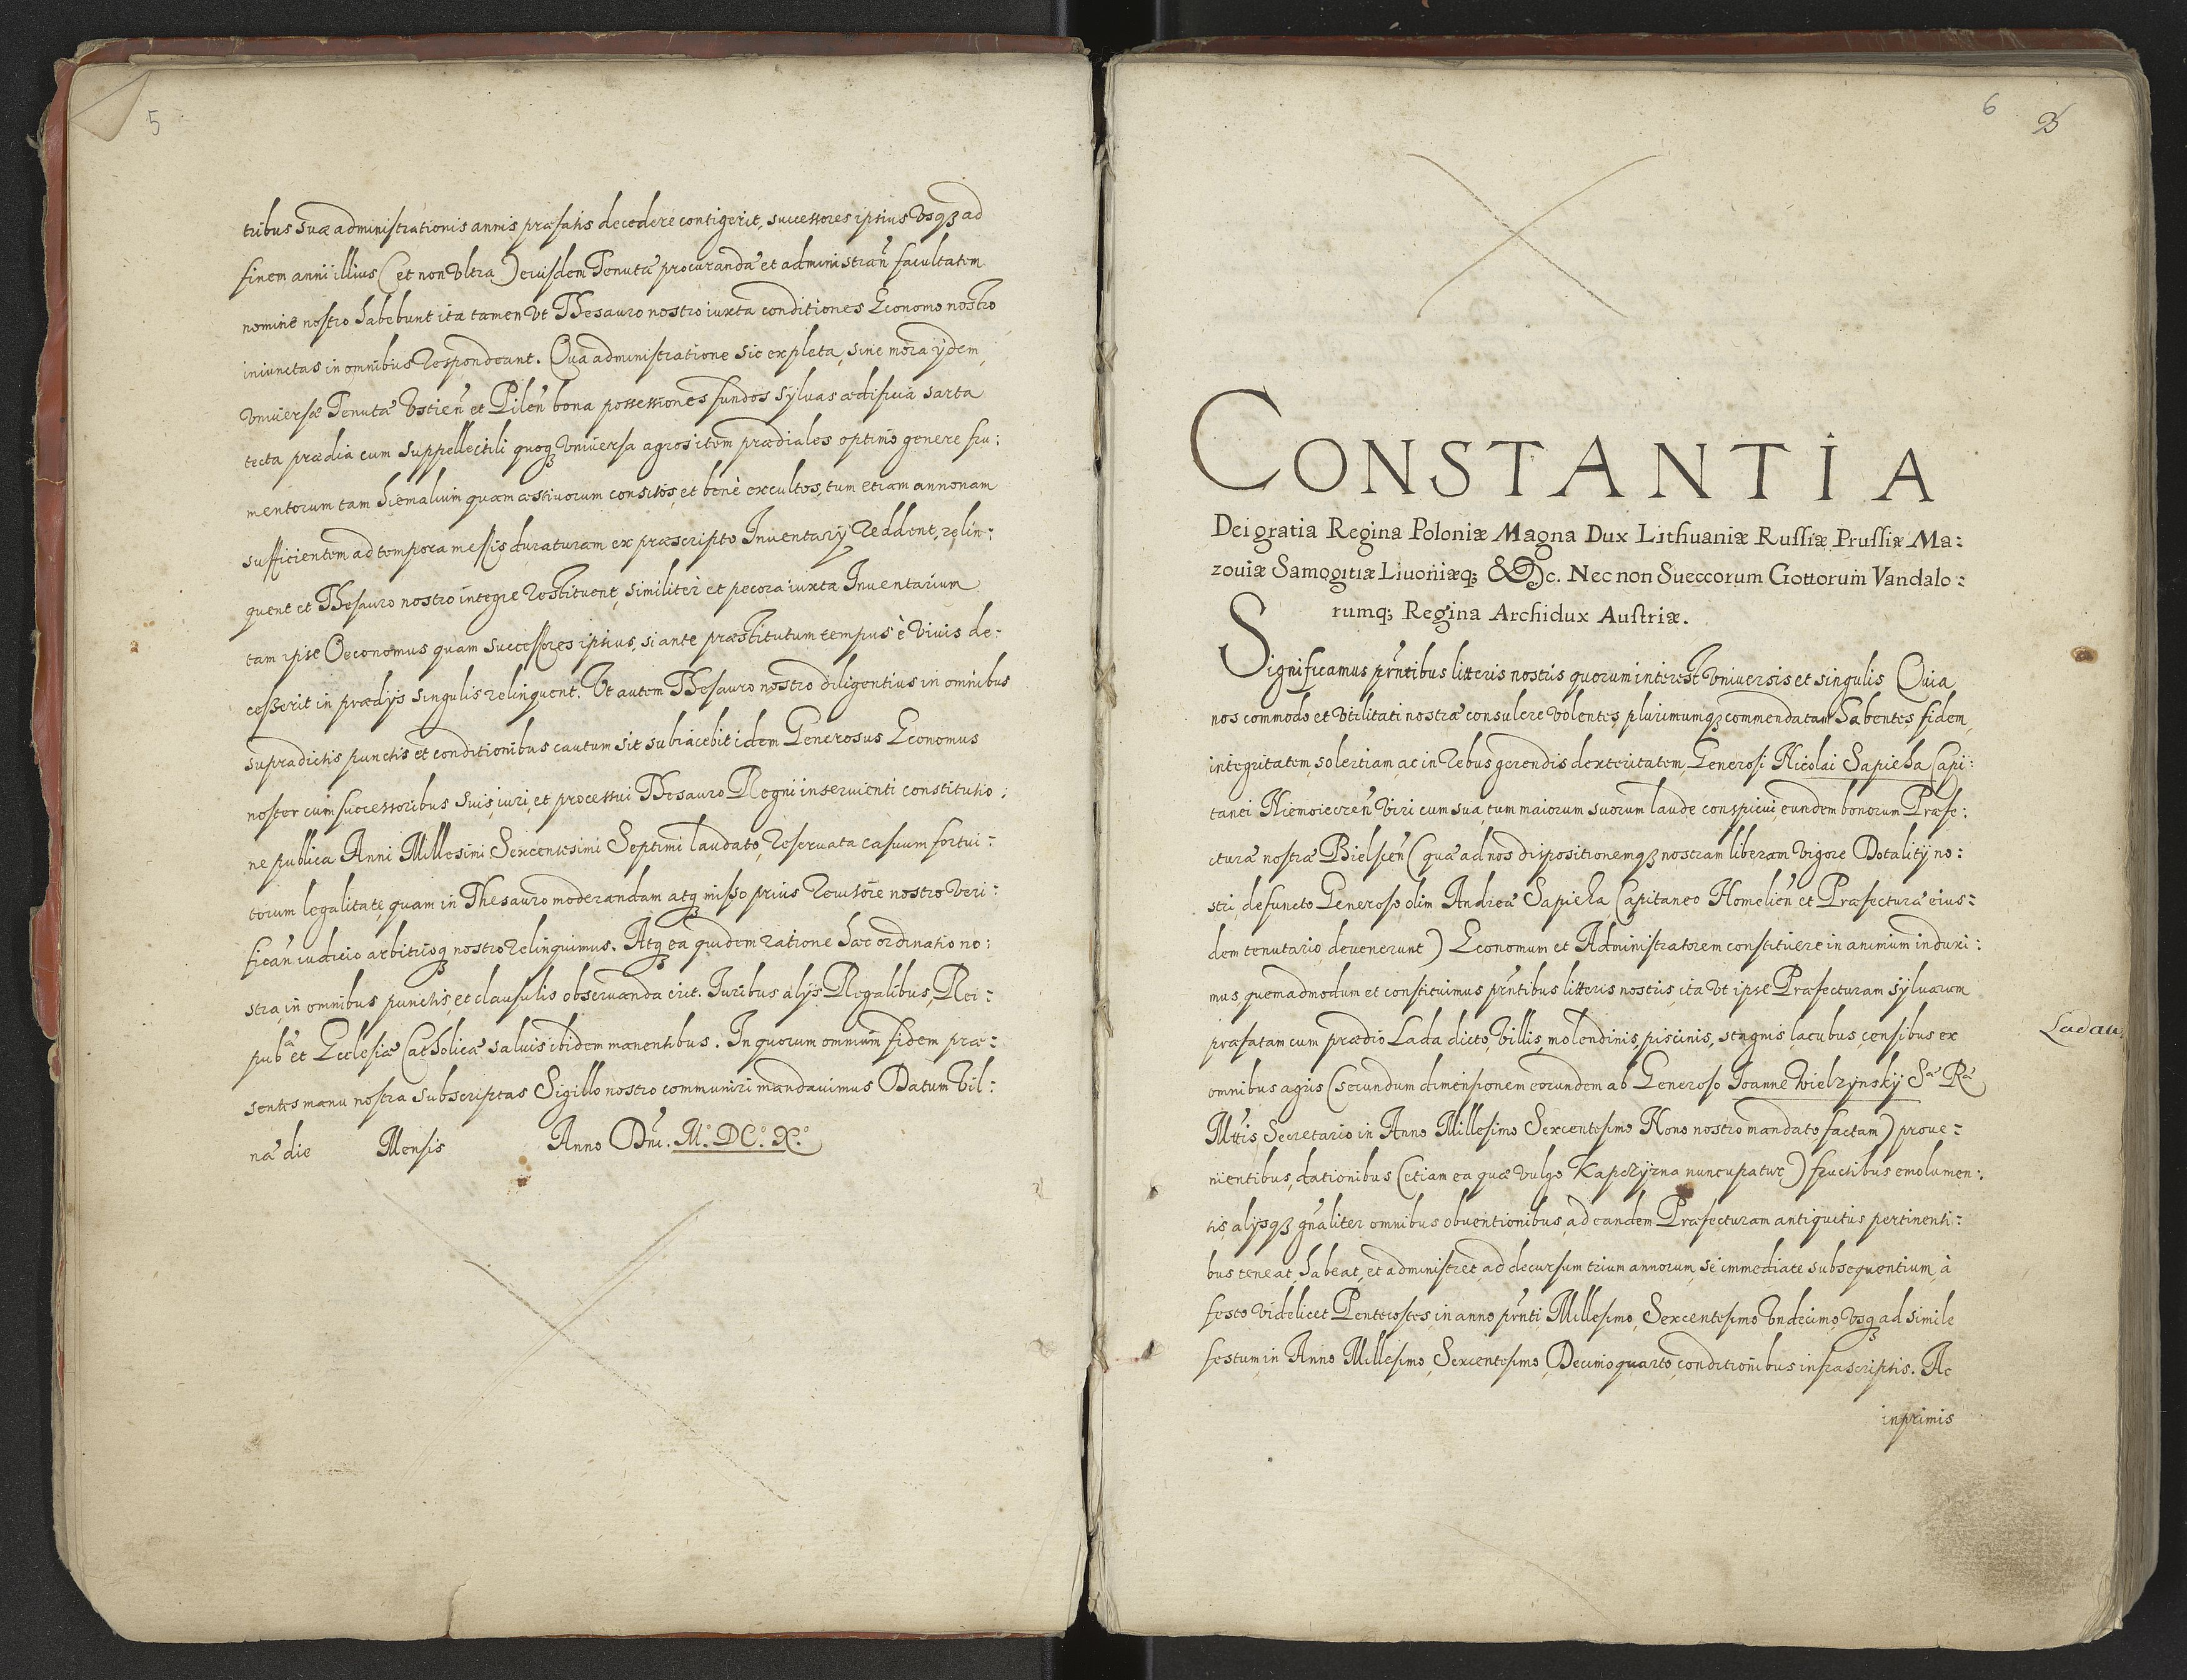 5
tribus suæ administrationis annis præfatis decedere contigerit, successores ipsius vsq3 ad
finem anni illius (et non vltra) eiusdem Tenutæ procurandæ et administrañ facultatem
nomine nostro habebunt ita tamen vt Thesauro nostro iuxta conditiones Economo nostro
iniunctas in omnibus respondeant. Qua administratione sic expleta, sine mora ijdem
vniuersæ Tenutæ Vstieñ et Pileñ bona possessiones fundos syluas ædificia sarta
tecta prædia cum suppellectili quoq3 vniuersa agros item prædiales optimo genere fru:
mentorum tam hiemalium quam æstiuorum consitos, et benè excultos, tum etiam annonam
sufficientem ad tempora messis duraturam ex præscripto Inuentarij reddent, relin:
quent et Thesauro nostro integre restituent, similiter et pecora iuxta Inuentarium
tam ipse Oeconomus quam successores ipsius, si ante præstitutum tempus è viuis de:
cesserit in prædijs singulis relinquent. Vt autem Thesauro nostro diligentius in omnibus
supradictis punctis et conditionibus cautum sit subiacebit idem Generosus Economus
noster cum successoribus suis, iuri, et processui Thesauro Regni inseruienti constitutio:
ne publica Anni Millesimi Sexcentesimi Septimi laudato, reseruata casuum fortui:
torum legalitate, quam in Thesauro moderandam atq3 misso prius reuisore nostro veri:
ficañ iudicio arbitrioq3 nostro relinquimus. Atq3 ea quidem ratione hæc ordinatio no:
stra, in omnibus punctis, et clausulis obseruanda erit. Iuribus alijs Regalibus, Rei:
pub<sup>æ</sup> et Ecclesiæ Catholicæ saluis ibidem manentibus. In quorum omnium fidem præ:
sentes manu nostra subscriptas Sigillo nostro communiri mandauimus Datum Vil:
næ die Mensis Anno Dni. M.º DC.º X.º
6
CONSTANTIA
Dei gratia Regina Poloniæ Magna Dux Lithuaniæ Russiæ Prussiæ Ma:
zouiæ Samogitiæ Liuoniæq; &c. Nec non Sueccorum Gottorum Vandalo:
rumq; Regina Archidux Austriæ.
Significamus prñtibus litteris nostris quorum interest vniuersis et singulis Quia
nos commodo et vtilitati nostræ consulere volentes, plurimumq3 commendatam habentes, fidem,
integritatem, solertiam, ac in rebus gerendis dexteritatem, Generosi Nicolai Sapieha Capi:
tanei Niemoiecreñ Viri cum sua, tum maiorum suorum laude conspicui, eundem bonorum Præfe:
cturæ nostræ Bielsceñ (quæ ad nos dispositionemq3 nostram liberam vigore Dotalitij no:
stri, defuncto Generoso olim Andrea Sapieha, Capitaneo Homelieñ et Præfecturæ eius:
dem tenutario, deuenerunt) Economum et Administratorem constituere in animum induxi:
mus quemadmodum et constituimus prñtibus litteris nostris, ita vt ipse Præfecturam syluarum
præfatam cum prædio Lada dicto, Villis, molendinis, piscinis, stagnis, lacubus, censibus ex
omnibus agris (secundum dimensionem eorundem ab Generoso Ioanne Wielzynskij S<sup>æ</sup> R<sup>æ</sup>
Mttis Secretario in Anno Millesimo Sexcentesimo Nono nostro mandato, factam) proue:
nientibus, dationibus (etiam ea quæ vulgo Kapczyzna nuncupatur) fructibus emolumen:
tis, alijsq3 gñaliter omnibus obuentionibus, ad eandem Præfecturam antiquitus pertinenti:
bus teneat, habeat, et administret, ad decursum trium annorum, se immediate subsequentium, à
festo videlicet Pentecostes, in anno prñti Millesimo, Sexcentesimo Vndecimo, vsq3 ad simile
festum, in Anno Millesimo, Sexcentesimo, Decimo quarto, conditionibus infrascriptis. Ac
inprimis